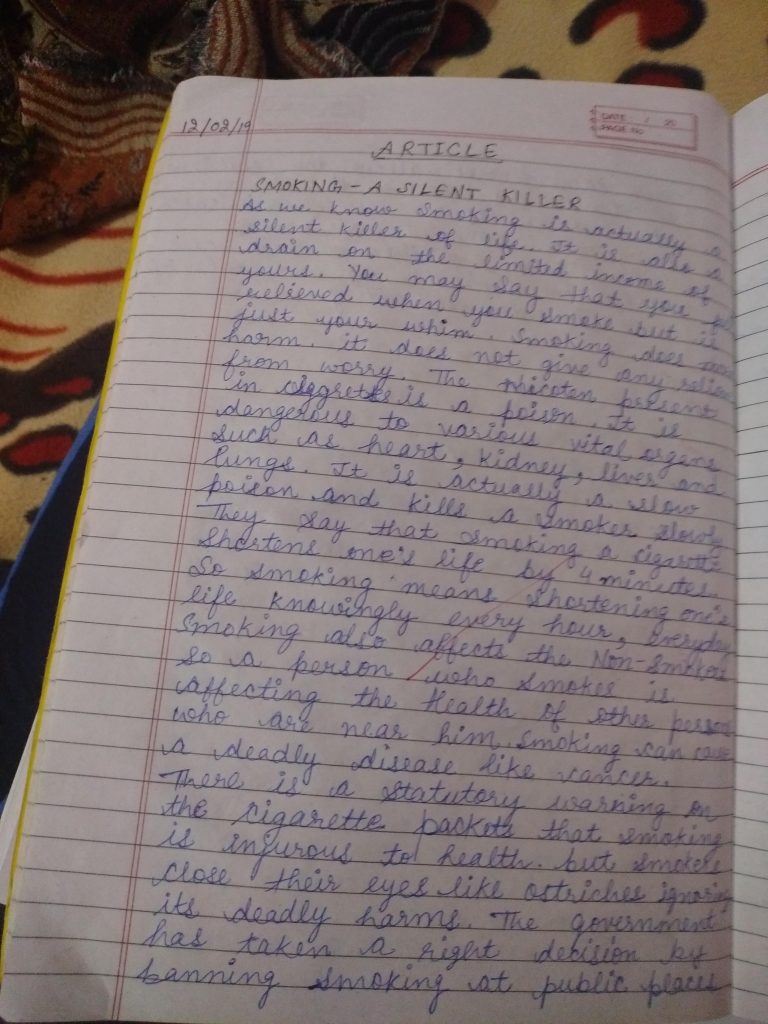 12/02/19
DATE: / 20
PAGE NO
ARTICLE
SMOKING - A SILENT KILLER
As we know smoking is actually a
silent killer of life. It is also a
drain on the limited income of
yours. You may say that you
relieved when you smoke but is
just your whim. Smoking does more
harm. it does not give any relief
from worry. The nicoten present
in ciggrette is a poison. It is
dangerous to various vital organs
such as heart, kidney, liver and
lungs. It is actually a slow
poison and kills a smoker slowly
They say that smoking a cigarette
shortens one's life by 4 minutes.
So smoking means shortening one's
life knowingly every hour, everyday
Smoking also affects the Non-Smokers
So a person who smokes is
affecting the Health of other persons
who are near him. Smoking can cause
a deadly disease like cancer.
There is a statutory warning on
the cigarette packets that smoking
is injurous to health. but smokers
close their eyes like ostriches ignoring
its deadly harms. The government
has taken a right decision by
banning smoking at public places